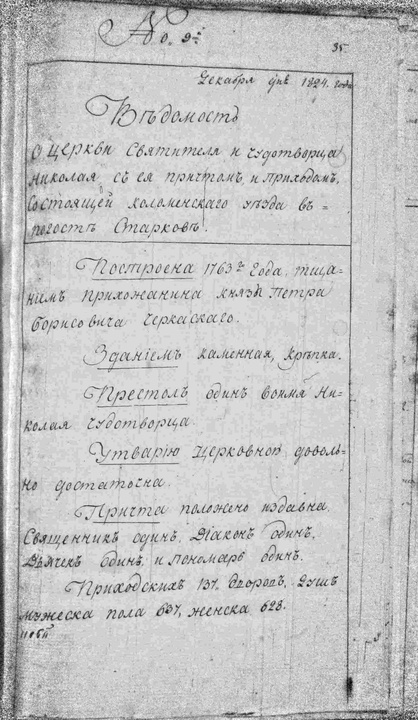 № 9й
35
Декабря дня 1824. года
Вѣдомость
О церкви Святителя и чудотворца
Николая, съ ея притомъ, и приходомъ,
Состоящей коломенскаго уѣзда въ =
погостѣ Старковѣ.
Построена 1763го Года, тща-
нiемъ прихожанина князя Петра
Борисовича Черкаскаго.
Зданiемъ каменная, крѣпка.
Престолъ одинъ воимя Ни=
колая чудотворца.
Утварiю церковной доволь-
но достаточна.
Причта положено издавна.
Священникъ одинъ, Дiаконъ одинъ,
Дьячекъ одинъ, и пономарь одинъ.
Приходскихъ 137. дворовъ, душъ
мужеска пола 637, женска 623.